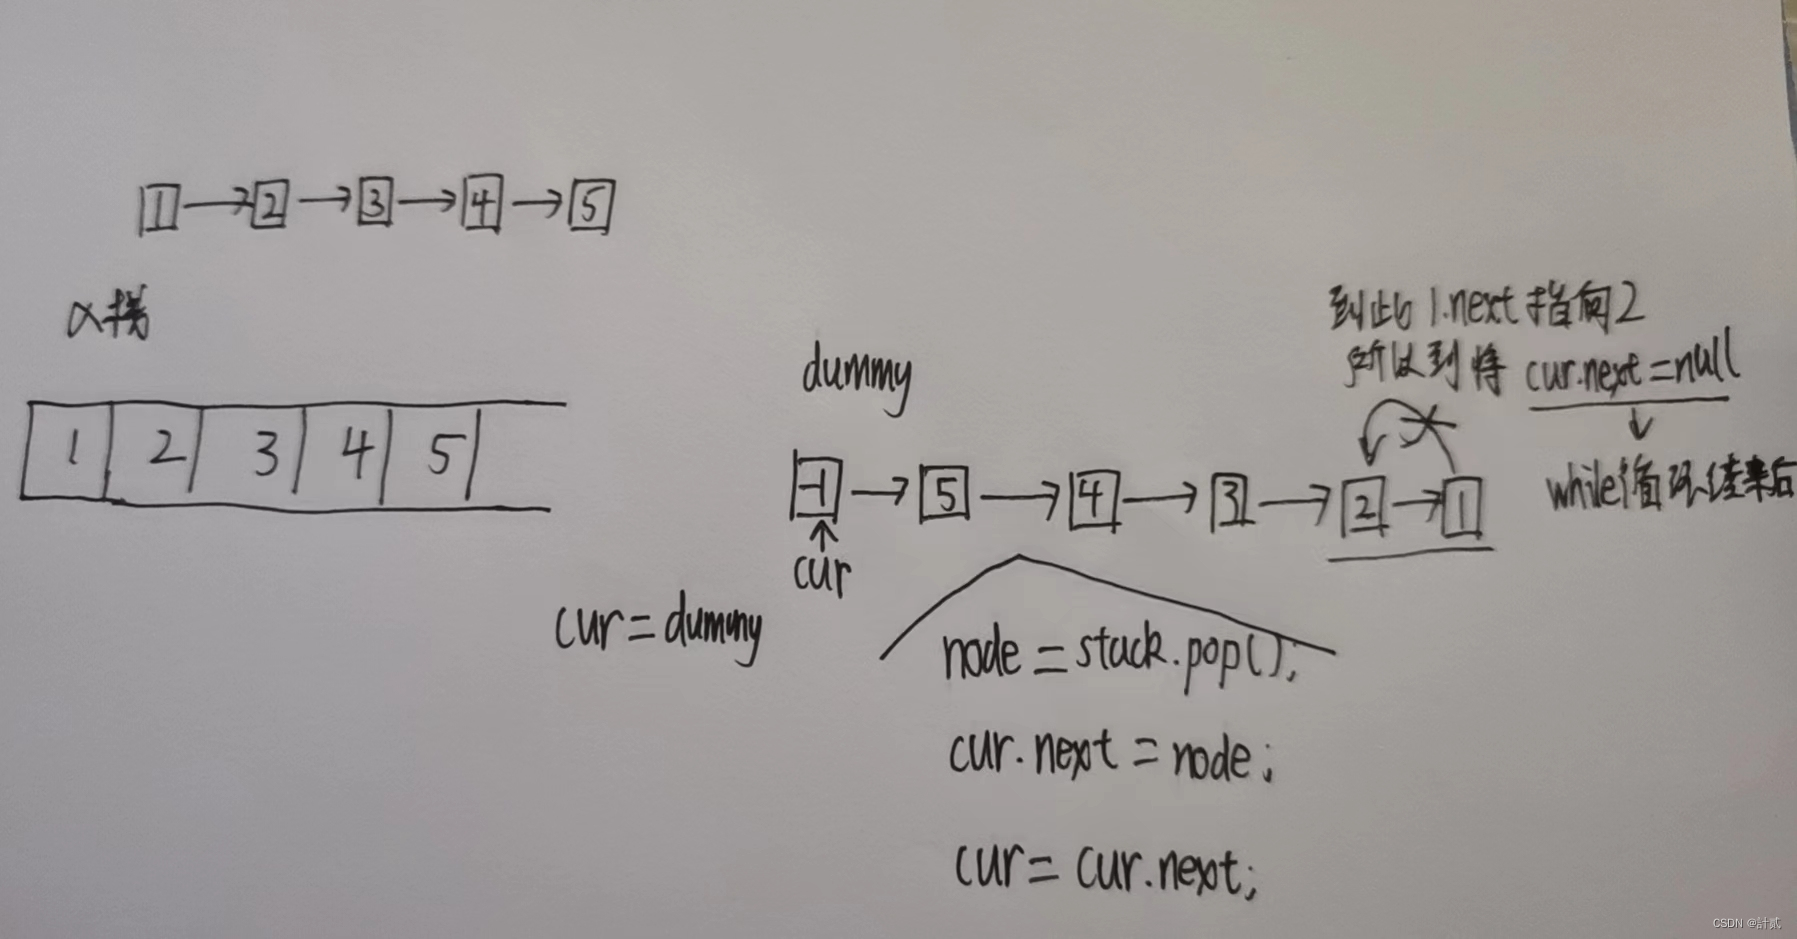 1 → 2 → 3 → 4 → 5
入栈
1 2 3 4 5
dummy
-1 → 5 → 4 → 3 → 2 → 1
cur
cur = dummy
node = stack.pop();
cur.next = node;
cur = cur.next;
到此 1.next 指向2
所以到将 cur.next = null
↓
while循环结束后
CSDN @計贰